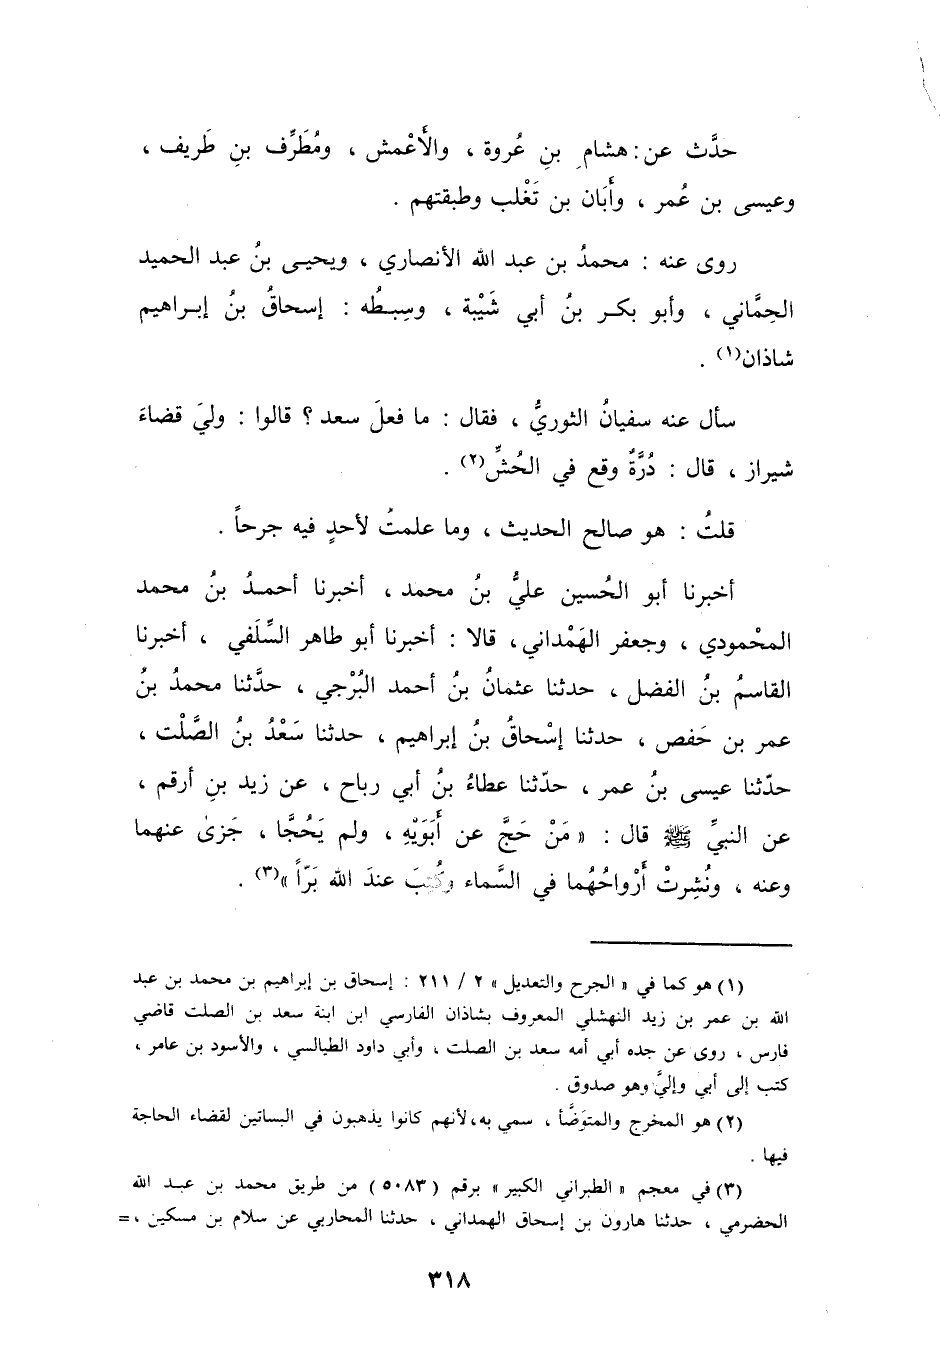 حدَّث عن : هشامِ بنِ عُروة ، والأَعْمش ، ومُطَرِّف بنِ طَريف ،
وعيسى بن عُمر ، وأَبَان بن تَغْلب وطبقتهم .
روى عنه : محمدُ بن عبد الله الأنصاري ، ويحيى بنُ عبد الحميد
الحِمَّاني ، وأبو بكر بنُ أبي شَيْبة ، وسِبطُه : إسحاقُ بنُ إبراهيم
شاذان(١) .
سأل عنه سفيانُ الثوريُّ ، فقال : ما فعلَ سعد ؟ قالوا : وليَ قضاءَ
شيراز ، قال : دُرَّةٌ وقع في الحُشِّ(٢) .
قلتُ : هو صالح الحديث ، وما علمتُ لأحدٍ فيه جرحاً .
أخبرنا أبو الحُسين عليُّ بنُ محمد ، أخبرنا أحمدُ بنُ محمد
المحْمودي ، وجعفر الهَمْداني ، قالا : أخبرنا أبو طاهر السِّلَفي ، أخبرنا
القاسمُ بنُ الفضل ، حدثنا عثمانُ بنُ أحمد البُرْجي ، حدَّثنا محمدُ بنُ
عمر بن حَفص ، حدثنا إسْحاقُ بنُ إبراهيم ، حدثنا سَعْدُ بنُ الصَّلْت ،
حدّثنا عيسى بنُ عمر ، حدّثنا عطاءُ بنُ أبي رباح ، عن زيد بنِ أرقم ،
عن النبيِّ ﷺ قال : « مَنْ حَجَّ عن أَبَوَيْهِ ، ولم يَحُجَّا ، جَزىٰ عنهما
وعنه ، ونُشِرتْ أَرْواحُهُما في السَّماء وكُتِبَ عندَ الله بَرّاً »(٣) .
(١) هو كما في « الجرح والتعديل » ٢ / ٢١١ : إسحاق بن إبراهيم بن محمد بن عبد
الله بن عمر بن زيد النهشلي المعروف بشاذان الفارسي ابن ابنة سعد بن الصلت قاضي
فارس ، روى عن جده أبي أمه سعد بن الصلت ، وأبي داود الطيالسي ، والأسود بن عامر ،
كتب إلى أبي وإليَّ وهو صدوق .
(٢) هو المخرج والمتوَضَّأ ، سمي به، لأنهم كانوا يذهبون في البساتين لقضاء الحاجة
فيها .
(٣) في معجم « الطبراني الكبير » برقم ( ٥٠٨٣ ) من طريق محمد بن عبد الله
الحضرمي ، حدثنا هارون بن إسحاق الهمداني ، حدثنا المحاربي عن سلام بن مسكين ، =
٣١٨